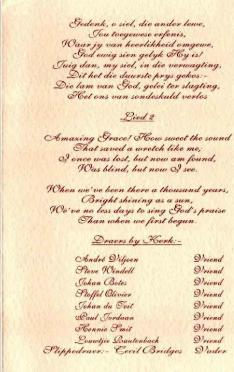 Gedenk, o siel, die ander lewe,
Jou toegewese erfenis,
Waar jy van heerlikheid omgewe,
God ewig sien gelyk Hy is!
Juig dan, my siel, in die verwagting,
Dit het die duurste prys gekos:-
Die lam van God, gelei ter slagting,
Het ons van sondeskuld verlos
Lied 2
Amazing Grace! How sweet the sound
That saved a wretch like me;
I once was lost, but now am found,
Was blind, but now I see.
When we've been there a thousand years,
Bright shining as a sun,
We've no less days to sing God's praise
Than when we first begun.
Draers by Kerk:-
André Viljoen Vriend
Steve Windell Vriend
Johan Botes Vriend
Stoffel Olivier Vriend
Johan du Toit Vriend
Paul Jordaan Vriend
Hennie Smit Vriend
Louwtjie Lautenbach Vriend
Slippedraer:- Cecil Bridges Vader